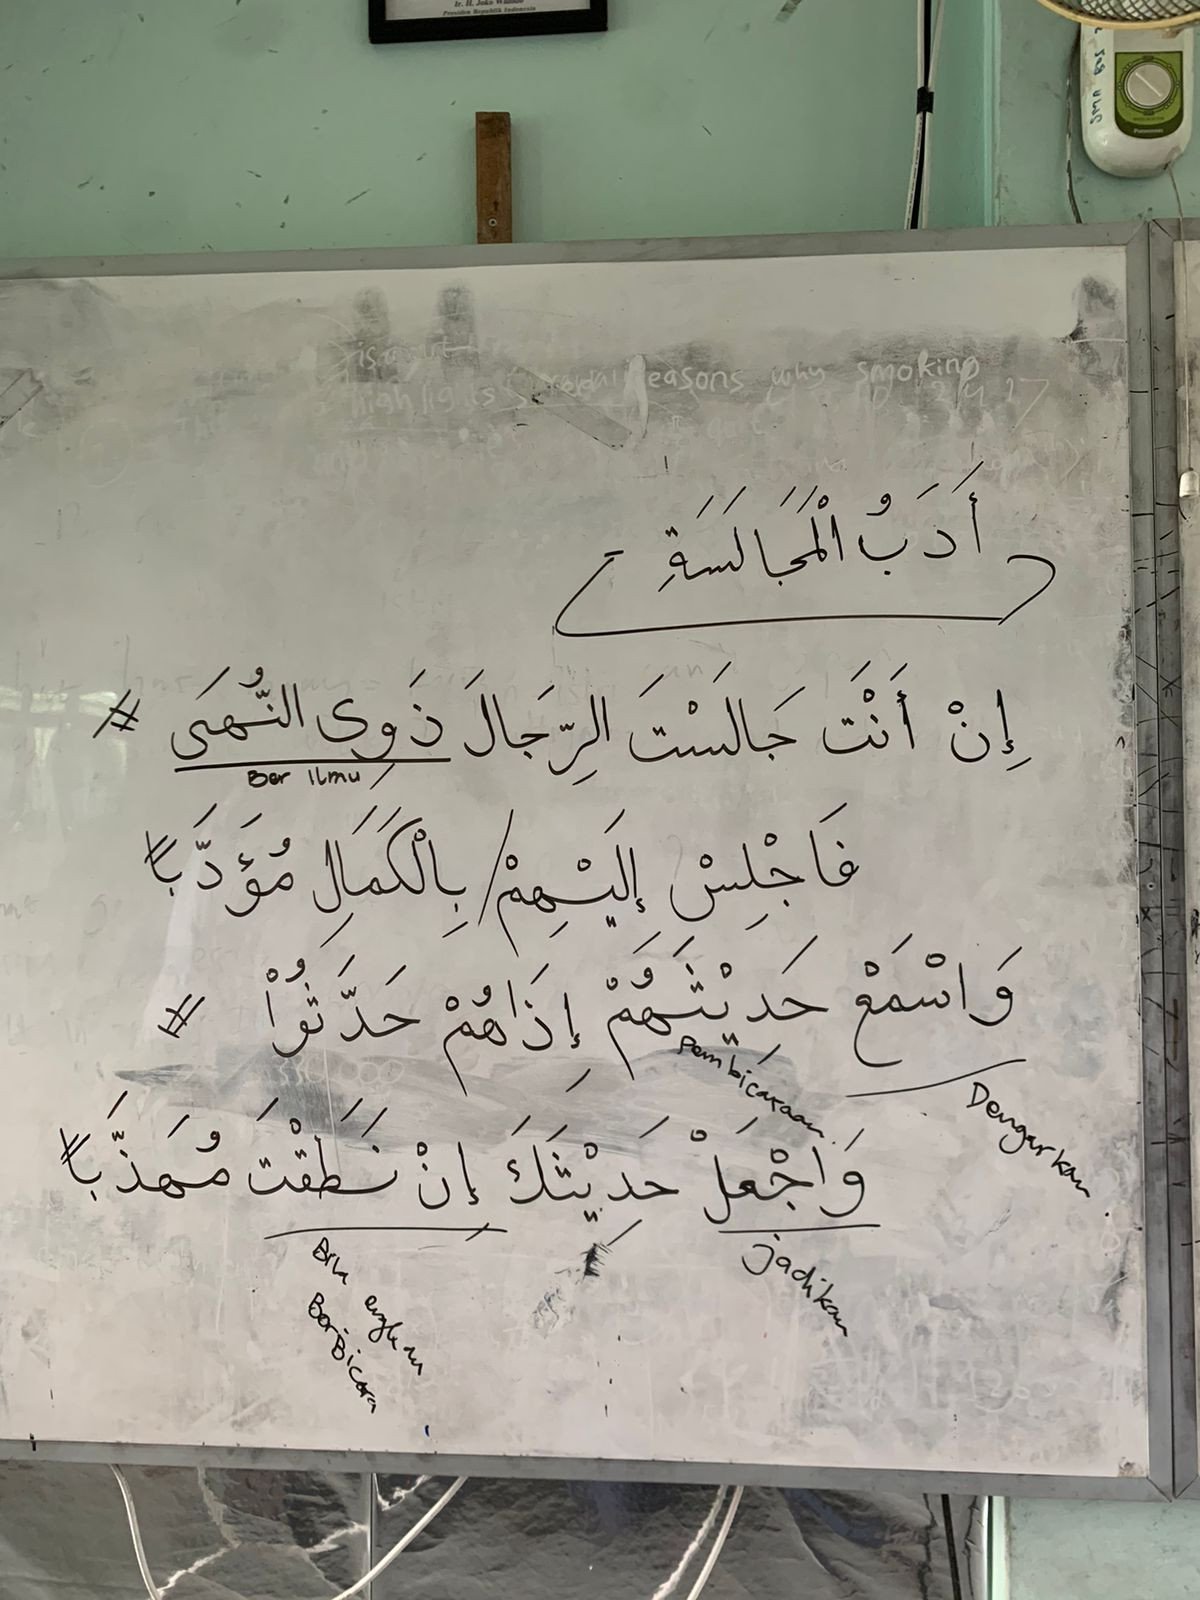 Ir. H. Joko Widodo
Presiden Republik Indonesia
Panasonic
reasons why smoking
highlights
أَدَبُ الْمَجَالَسَةِ
إِنْ أَنْتَ جَالَسْتَ الرِّجَالَ ذَوِى النُّهَى #
Ber Ilmu
فَاجْلِسْ إِلَيْهِمْ / بِالْكَمَالِ مُؤَدَّبًا
وَاسْمَعْ حَدِيْثَهُمْ إِذَاهُمْ حَدَّثُوْا #
Pembicaraan
Dengarkan
وَاجْعَلْ حَدِيْثَكَ إِنْ نَطَقْتَ مُهَذَّبًا
Jadikan
Bila engkau
BerBicara